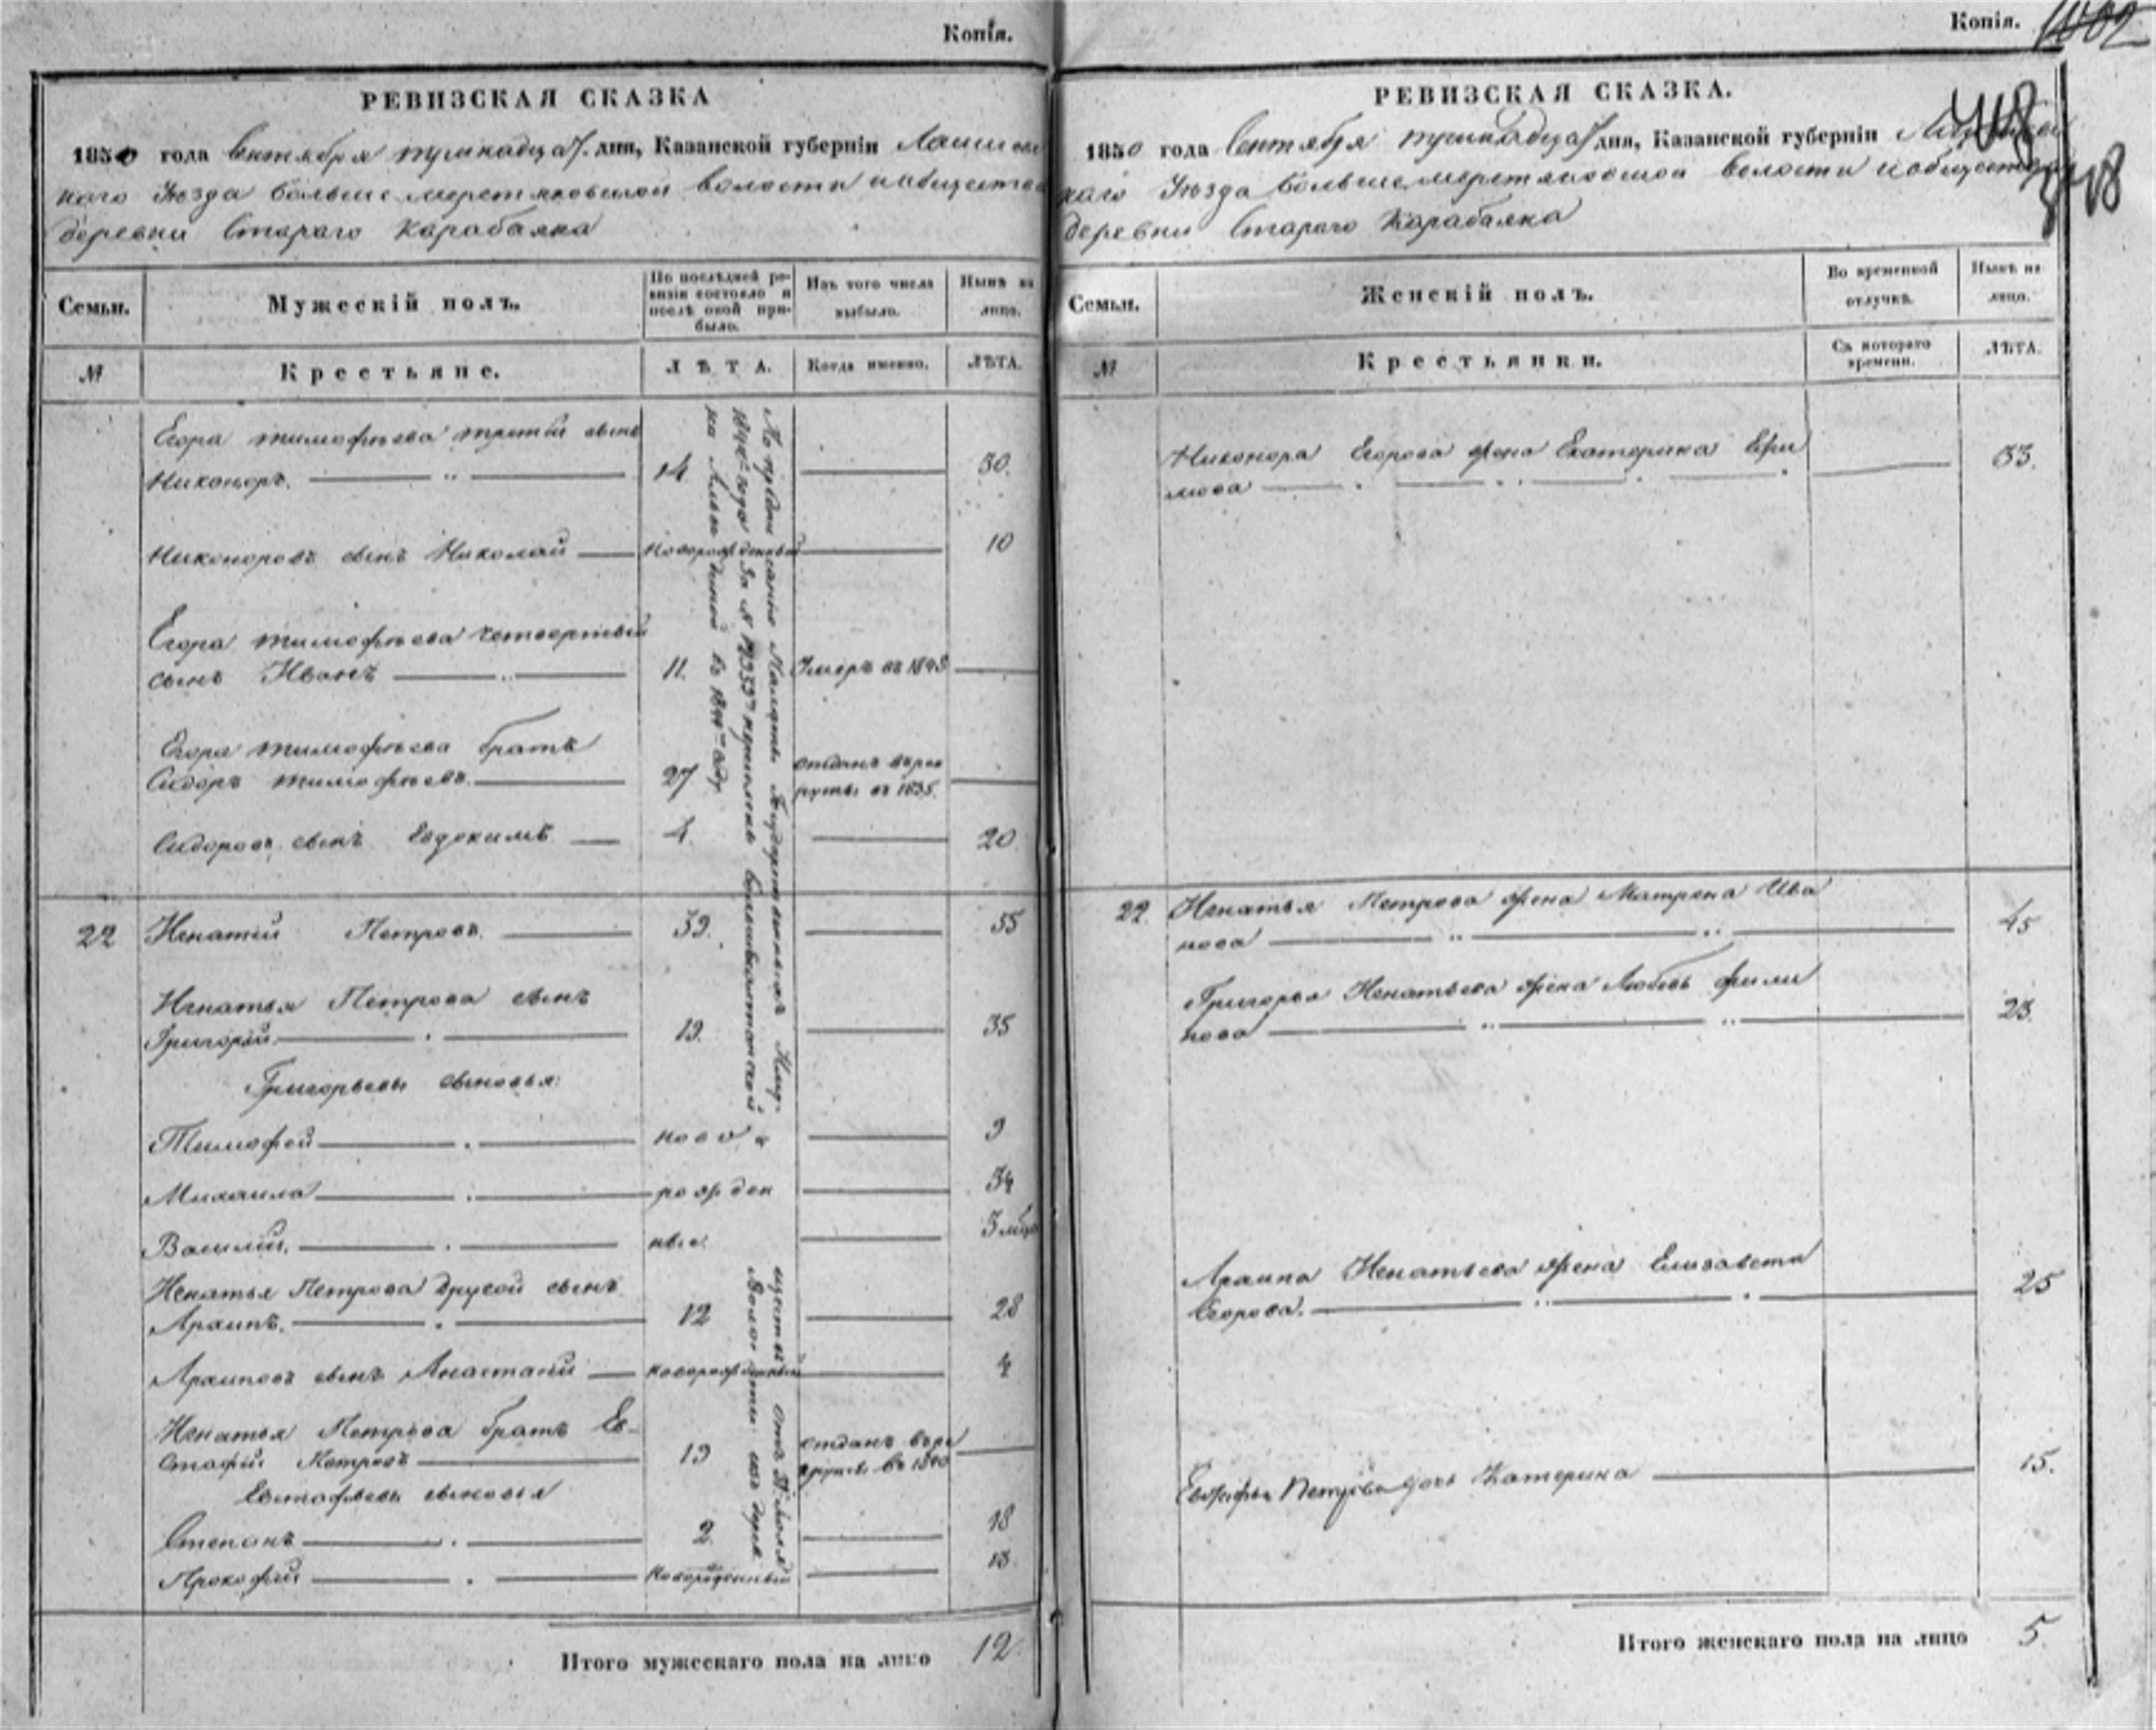 Копія.
РЕВИЗСКАЯ СКАЗКА
1850 года Сентября тринадцат. дня, Казанской губерніи Лаишевс
каго Уѣзда Большемеретяковской волости и общества
деревни Стараго Карабаяна
Семьи.
Мужескій полъ.
По послѣдней ре-
визіи состояло и
послѣ оной при-
было.
Изъ того числа
выбыло.
Нынѣ на
лицо.
№
Крестьяне.
ЛѢТА.
Когда именно.
ЛѢТА.
Егора тимофѣева третій сынъ
Никоноръ. 14 30.
Никоноровъ сынъ Николай новорожденный 10
Егора тимофѣева четвертый
сынъ Иванъ 11. Умеръ въ 1843
Егора тимофѣева братъ
Сидоръ тимофѣевъ. 27 отданъ въ рек
руты въ 1835.
Сидоровъ сынъ Евдокимъ 4 20
22 Игнатій Петровъ. 39. 55
Игнатья Петрова сынъ
Григорій. 19. 35
Григорьевы сыновья:
Тимофей ново 9
Михаила рожден 3¼
Василий. ные. 3 мѣс
Игнатья Петрова другой сынъ
Архипъ. 12 28
Архиповъ сынъ Анастасій новорожденный 4
Игнатья Петрова братъ Ев-
стафій Петровъ 19 отданъ въ ре
круты въ 1840
Евстафьевы сыновья
Степанъ 2. 18
Прокофій новорожденный 13.
Итого мужескаго пола на лицо 12.
По предписанію Палаты Государственныхъ Иму-
ществъ отъ
волости из дерев.
Копія.
1002
РЕВИЗСКАЯ СКАЗКА.
1850 года Сентября тринадцат дня, Казанской губерніи
каго Уѣзда Большемеретяковской волости и общества
деревни Стараго Карабаяна
418
Семьи.
Женскій полъ.
Во временной
отлучкѣ.
Нынѣ на
лицо.
№
Крестьянки.
Съ котораго
времени.
ЛѢТА.
Никонора Егорова жена Екатерина Ефи
мова 33.
22. Игнатья Петрова жена Матрена Ива
нова 45
Григорья Игнатьева жена Любовь фили
пова 23.
Архипа Игнатьева жена Елизавета
Егорова. 25
Евстафья Петрова дочь Катерина 15.
Итого женскаго пола на лицо 5.